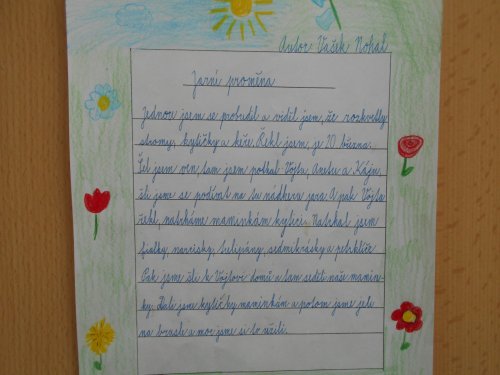 Autor Vašek Nohal
Jarní proměna
Jednou jsem se probudil a viděl jsem, že rozkvetly
stromy, kytičky a keře. Řekl jsem, je 20 března.
Šel jsem ven, tam jsem potkal Vojtu, Anetu a Káju,
šli jsme se podívat na tu nádheru jara. A pak Vojta
řekl, natrháme maminkám kytici. Natrhal jsem
fialky, narcisky, tulipány, sedmikrásky a petrklíče
Pak jsme šli k Vojtovi domů a tam seděli naše mamin-
ky. Dali jsme kytičky maminkám a potom jsme jeli
na brusle a moc jsme si to užili.